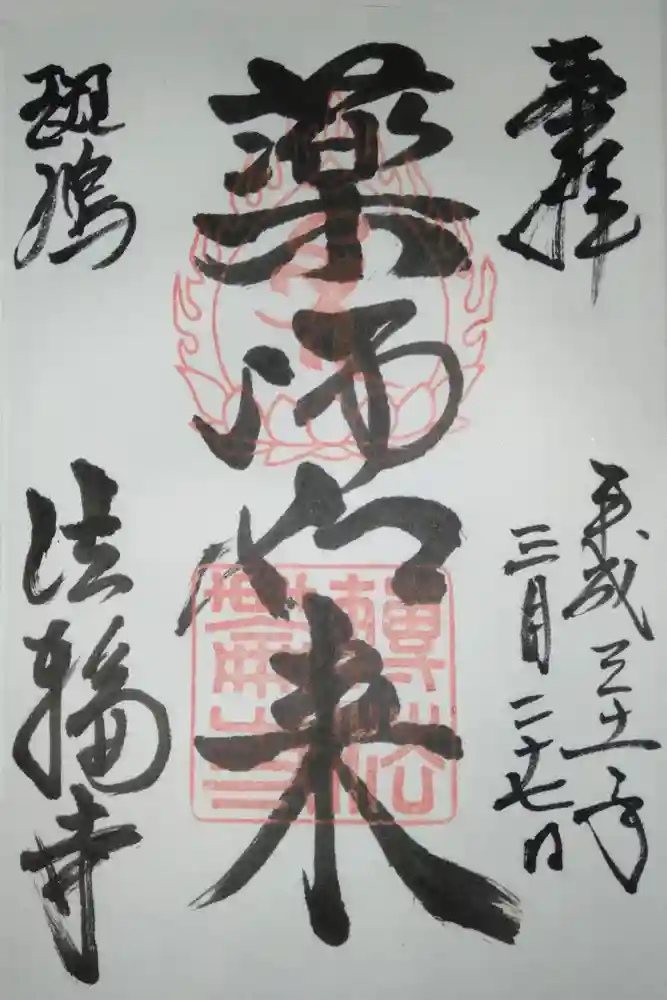 奉拝
平成三十一年
三月二十七日
薬师如来
斑鳩
法輪寺